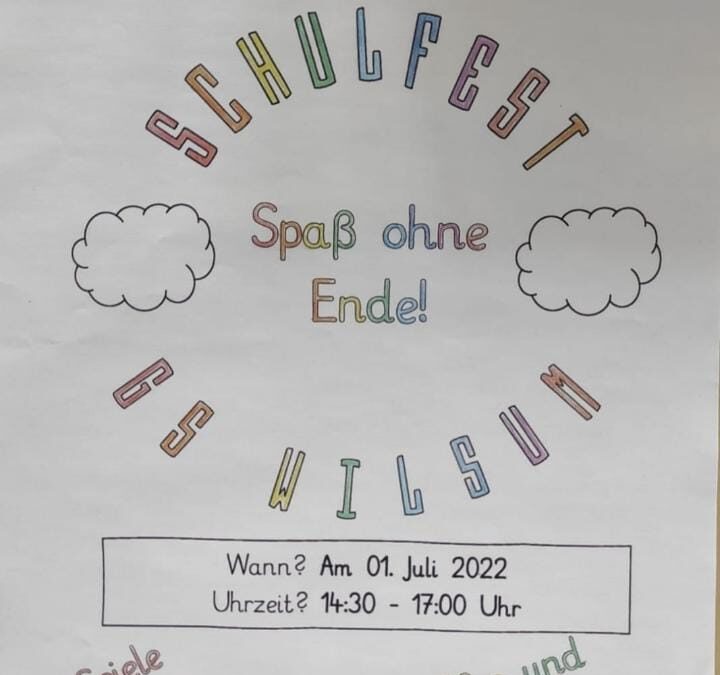 SCHULFEST
Spaß ohne
Ende!
GS WILSUM
Wann? Am 01. Juli 2022
Uhrzeit? 14:30 - 17:00 Uhr
und